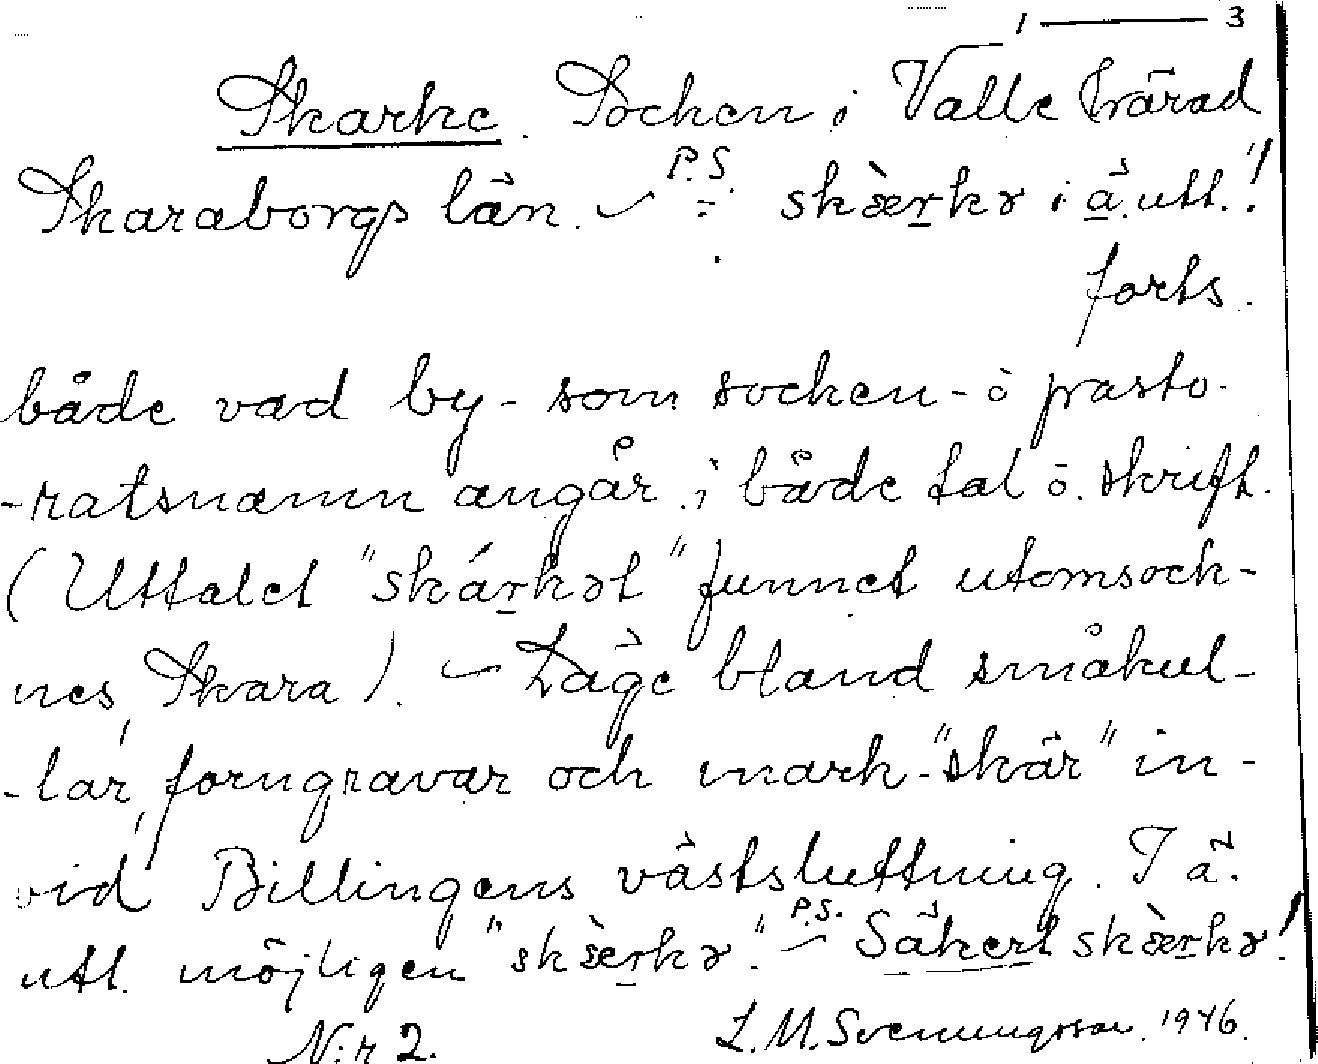 1 — 3
Skarke. Socken i Valle härad
Skaraborgs län. – P.S. skæ̀r̠kɤ i ä. utt.!
forts.
både vad by- som socken- ò pasto-
-ratsnamn angår i både tal ò. skrift.
(Uttalet "skár̠kɘt" funnet utomsock-
nes, Skara). – Läge bland småkul-
-lar, forngravar och mark-"skär" in-
vid Billingens västsluttning. I ä.
utt. möjligen "skæ̀r̠kɤ". P.S. – Säkert skæ̀r̠kɤ!
N:r 2. L. M. Svenungsson. 1946.